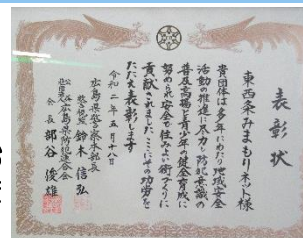 表彰状
東西条みまもりネット様
貴団体は多年にわたり地域安全
活動の推進に尽力し防犯意識の
普及高揚と青少年の健全育成に
努められ安全で住みよい街づくりに
貢献されましたここにその功労を
たたえ表彰します
令和二年五月十八日
広島県警察本部長
警視監 鈴木信弘
公益社団法人 広島県防犯連合会
会長 部谷俊雄